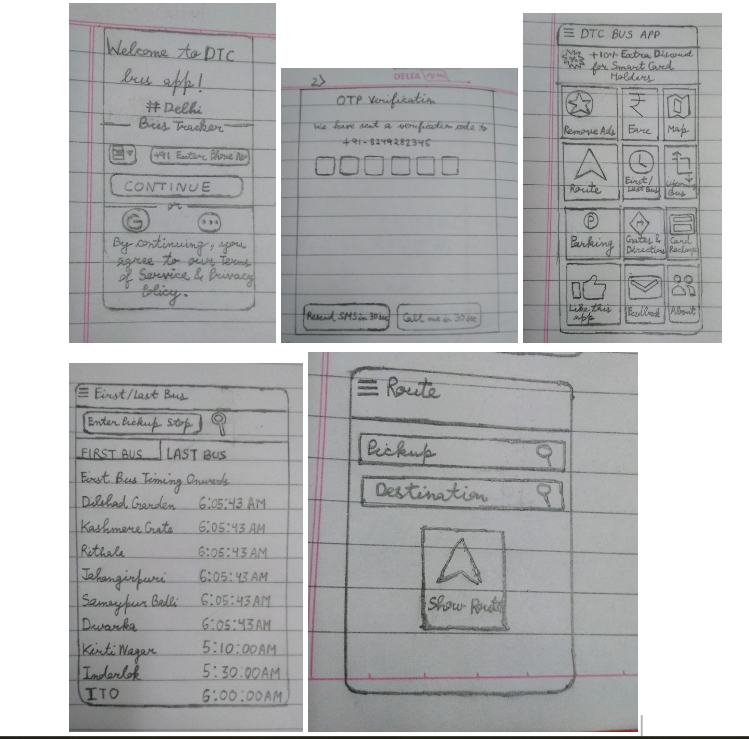 Welcome to DTC
bus app!
#Delhi
Bus Tracker
+91 Enter Phone No
CONTINUE
or
G
By continuing, you
agree to our Terms
of Service & Privacy
Policy.
DELTA
2)
OTP Verification
We have sent a verification code to
+91-8249282345
Resend SMS in 30 sec
Call me in 30 sec
DTC BUS APP
+10% Extra Discount
for Smart Card
Holders
Remove Ads
Fare
Map
Route
First/
Last Bus
Upcoming
Bus
P
Parking
Gates &
Direction
Card
Recharge
Like this
app
Feedback
About
First/Last Bus
Enter Pickup Stop
FIRST BUS
LAST BUS
First Bus Timing Onwards
Dilshad Garden 6:05:43 AM
Kashmere Gate 6:05:43AM
Rithala 6:05:43AM
Jahangirpuri 6:05:43AM
Samaypur Badli 6:05:43AM
Dwarka 6:05:43AM
Kirti Nagar 5:10:00AM
Inderlok 5:30:00AM
ITO 6:00:00AM
Route
Pickup
Destination
Show Route